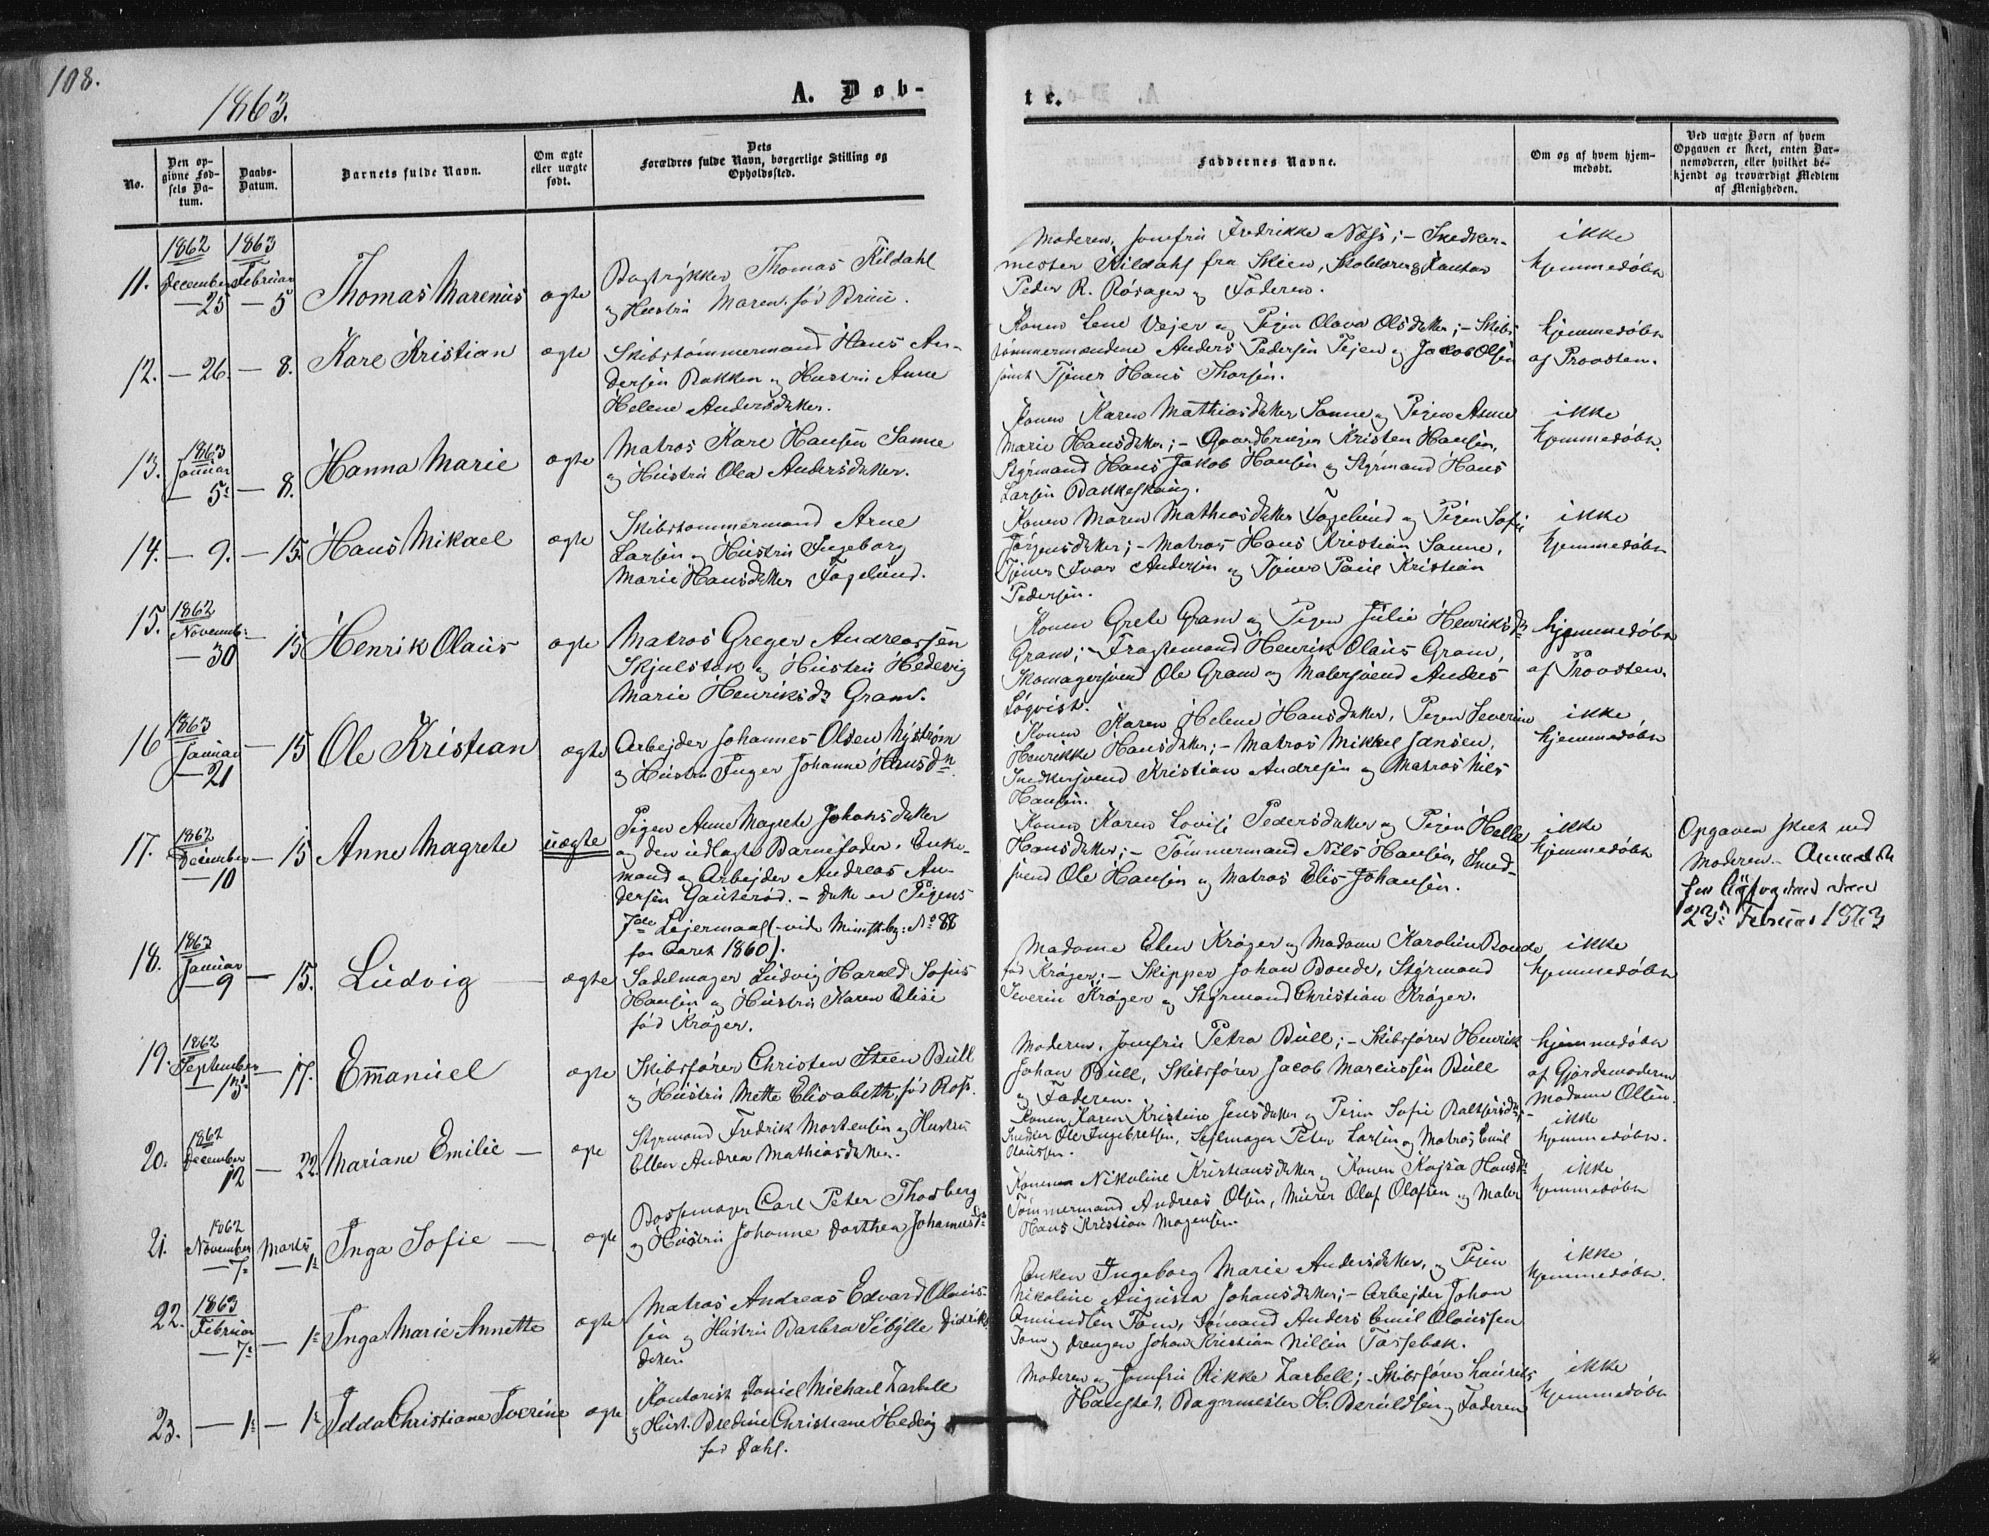 108.
1863.
A. Døb-
te.
No.
Den opgivne Fødsels Datum.
Daabs-Datum.
Barnets fulde Navn.
Om ægte eller uægte født.
Dets Forældres fulde Navn, borgerlige Stilling og Opholdssted.
Faddernes Navne.
Om og af hvem hjemmedøbt.
Ved uægte Børn af hvem Opgaven er skeet, enten Barnemoderen, eller hvilket bekjendt og troværdigt Medlem af Menigheden.
11.
1862 December 25
1863 Februar 5
Thomas Marenius
ægte
Bogtrykker Thomas Kildahl
og Hustru Maren, fød Bruu.
Moderen, Jomfru Fredrikke Næss; - Snedker-
mester Kildahl fra Skien, Skolelærer & Kantor
Peder R. Røsager og Faderen.
ikke
hjemmedøbt
12. - 26. - 8.
Karl Kristian
ægte
Skibstømmermand Hans An-
dersen Bakken og Hustru Anne
Helene Andersdatter.
Konen Lene Vejer og Pigen Olava Olsdatter; - Skibs
tømmermændene Anders Pedersen Tejen og Jacob Olsen
samt Tjener Hans Thorsen.
hjemmedøbt
af Provsten.
13.
1863 Januar 5
8.
Hanna Marie
ægte
Matros Karl Hansen Sanne
og Hustru Olea Andersdatter.
Konen Karen Mathiasdatter Sanne og Pigen Anne
Marie Hansdatter; - Gaardbruger Kristen Hansen,
Styrmand Hans Jakob Hansen og Styrmand Hans
Larsen Bakkeskaug.
ikke
hjemmedøbt.
14. - 9. - 15.
Hans Mikael
ægte
Skibstømmermand Arne
Larsen og Hustru Ingeborg
Marie Hansdatter Fagelund.
Konen Maren Mathiasdatter Fagelund og Pigen Sofie
Jørgensdatter; - Matros Hans Kristian Sanne,
Tjener Ivar Andersen og Tjener Paul Kristian
Pedersen.
ikke
hjemmedøbt
15.
1862 Novemb: 30
15
Henrik Olaus
ægte
Matros Greger Andreassen
Skjulstok og Hustru Hedevig
Marie Henriksdr Gram.
Konen Grete Gram og Pigen Julie Henriksdr
Gram; - Fragtemand Henrik Olaus Gram,
Skomagersvend Ole Gram og Malersvend Anders
Løqvist.
hjemmedøbt
af Provsten.
16
1863 Januar 21
15
Ole Kristian
ægte
Arbejder Johannes Olsen Nystrøm
og Hustru Inger Johanne Hansdn
Konen Karen Helene Hansdatter, Pigen Severine
Henrikke Hansdatter; - Matros Mikkel Jansen,
Snedkersvend Kristian Andresen og Matros Nils
Hansen.
ikke
hjemmedøbt
17.
1862 December 10
15
Anne Magrete
uægte
Pigen Anne Magrete Johansdatter
og den udlagte Barnefader, Enke-
mand og Arbejder Andreas An-
dersen Gauterød. - Dette er Pigens
7de Lejermaal (- vide Ministbog: No 88
for Aaret 1860).
Konen Karen Lovise Pedersdatter og Pigen Helle
Hansdatter; - Tømmermand Nils Hansen, Smed-
svend Ole Hansen og Matros Elis Johansen.
ikke
hjemmedøbt
Opgaven skeet ved
Moderen - Anmeldt
for Byfogden den
23de Februar 1863
18.
1863 Januar 9
15.
Ludvig
ægte
Sadelmager Ludvig Harald Sofus
Hansen og Hustru Karen Elise
fød Krøger.
Madame Elen Krøger og Madame Karoline Bonde
fød Krøger; - Skipper Johan Bonde, Styrmand
Severin Krøger og Styrmand Christian Krøger.
ikke
hjemmedøbt
19.
1862 September 13.
17.
Emanuel
ægte
Skibsfører Christen Steen Bull
og Hustru Mette Elisabeth, fød Ross.
Moderen, Jomfru Petra Bull; - Skibsfører Henrik
Johan Bull, Skibsfører Jacob Mareussen Bull
og Faderen.
hjemmedøbt
af Gjordemoderen
Madame Olsen.
20.
1862 December 12
22
Mariane Emilie
ægte
Styrmand Fredrik Mortensen og Hustru
Ellen Andrea Mathiasdatter.
Konen Karen Kristine Jensdatter og Pigen Sofie Baltsersdr;
Snedker Ole Ingebretsen, Sejlmager Peter Larsen og Matros Emil
Olaussen.
ikke
hjemmedøbt.
21.
1862 November 7
Marts 1
Inga Sofie
ægte
Bøssemager Carl Peter Thorberg
og Hustru Johanne Dorthea Johannesdr
Konen Nikoline Kristiansdatter og Konen Kajsa Hansdr
Tømmermand Andreas Olsen, Murer Olaf Olafsen og Maler
Hans Kristian Mogensen.
ikke
hjemmedøbt
22.
1863 Februar 7
1
Inga Marie Annette
ægte
Matros Andreas Edvard Olaus-
sen og Hustru Barbra Sibylle Didriks
datter.
Enken Ingeborg Marie Andersdatter, og Pigen
Nikoline Augusta Johansdatter; - Arbejder Johan
Amundsen Tom, Sømand Anders Emil Olaussen
Tom og Drengen Johan Kristian Nilsen Tassebæk.
ikke
hjemmedøbt.
23. - 1 - 1
Idda Christiane Iverine
ægte
Kontorist Daniel Michael Zarbell
og Hust. Bredine Christiane Hedvig
fød Dahl.
Moderen og Jomfru Rikke Zarbell; - Skibsfører Laurits
Hansted, Bagermester H. Beruldsen og Faderen
ikke
hjemmedøbt